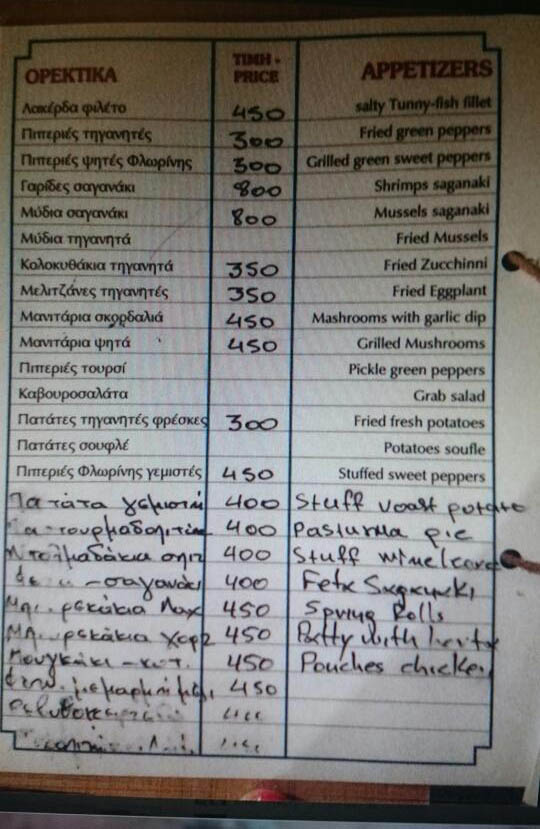 ΟΡΕΚΤΙΚΑ ΤΙΜΗ - PRICE APPETIZERS
Λακέρδα φιλέτο 450 salty Tunny-fish fillet
Πιπεριές τηγανητές 300 Fried green peppers
Πιπεριές ψητές Φλωρίνης 300 Grilled green sweet peppers
Γαρίδες σαγανάκι 800 Shrimps saganaki
Μύδια σαγανάκι 800 Mussels saganaki
Μύδια τηγανητά Fried Mussels
Κολοκυθάκια τηγανητά 350 Fried Zucchinni
Μελιτζάνες τηγανητές 350 Fried Eggplant
Μανιτάρια σκορδαλιά 450 Mashrooms with garlic dip
Μανιτάρια ψητά 450 Grilled Mushrooms
Πιπεριές τουρσί Pickle green peppers
Καβουροσαλάτα Grab salad
Πατάτες τηγανητές φρέσκες 300 Fried fresh potatoes
Πατάτες σουφλέ Potatoes soufle
Πιπεριές Φλωρίνης γεμιστές 450 Stuffed sweet peppers
Πατάτα γεμιστή 400 Stuff roast potato
400 Pasturma pie
Ντολμαδάκια 400 Stuff
σαγανάκι 400 Feta
450 Spring Rolls
450 Patty with
450 Pouches chicken
450